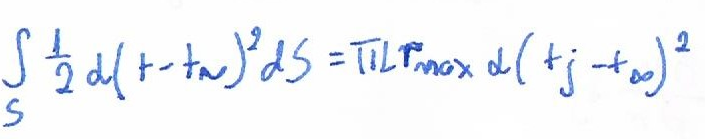 ∫_S 1/2 α(t - t_∞)² dS = π L r_max α(t_j - t_∞)²